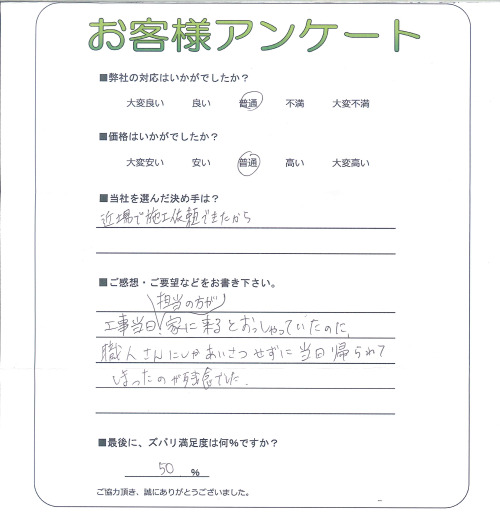 お客様アンケート
■弊社の対応はいかがでしたか？
大変良い 良い 普通 不満 大変不満
■価格はいかがでしたか？
大変安い 安い 普通 高い 大変高い
■当社を選んだ決め手は？
近場で施工依頼できたから
■ご感想・ご要望などをお書き下さい。
担当の方が
工事当日家に来るとおっしゃっていたのに、
職人さんにしかあいさつせずに当日帰られて
しまったのが残念でした。
■最後に、ズバリ満足度は何％ですか？
50 ％
ご協力頂き、誠にありがとうございました。